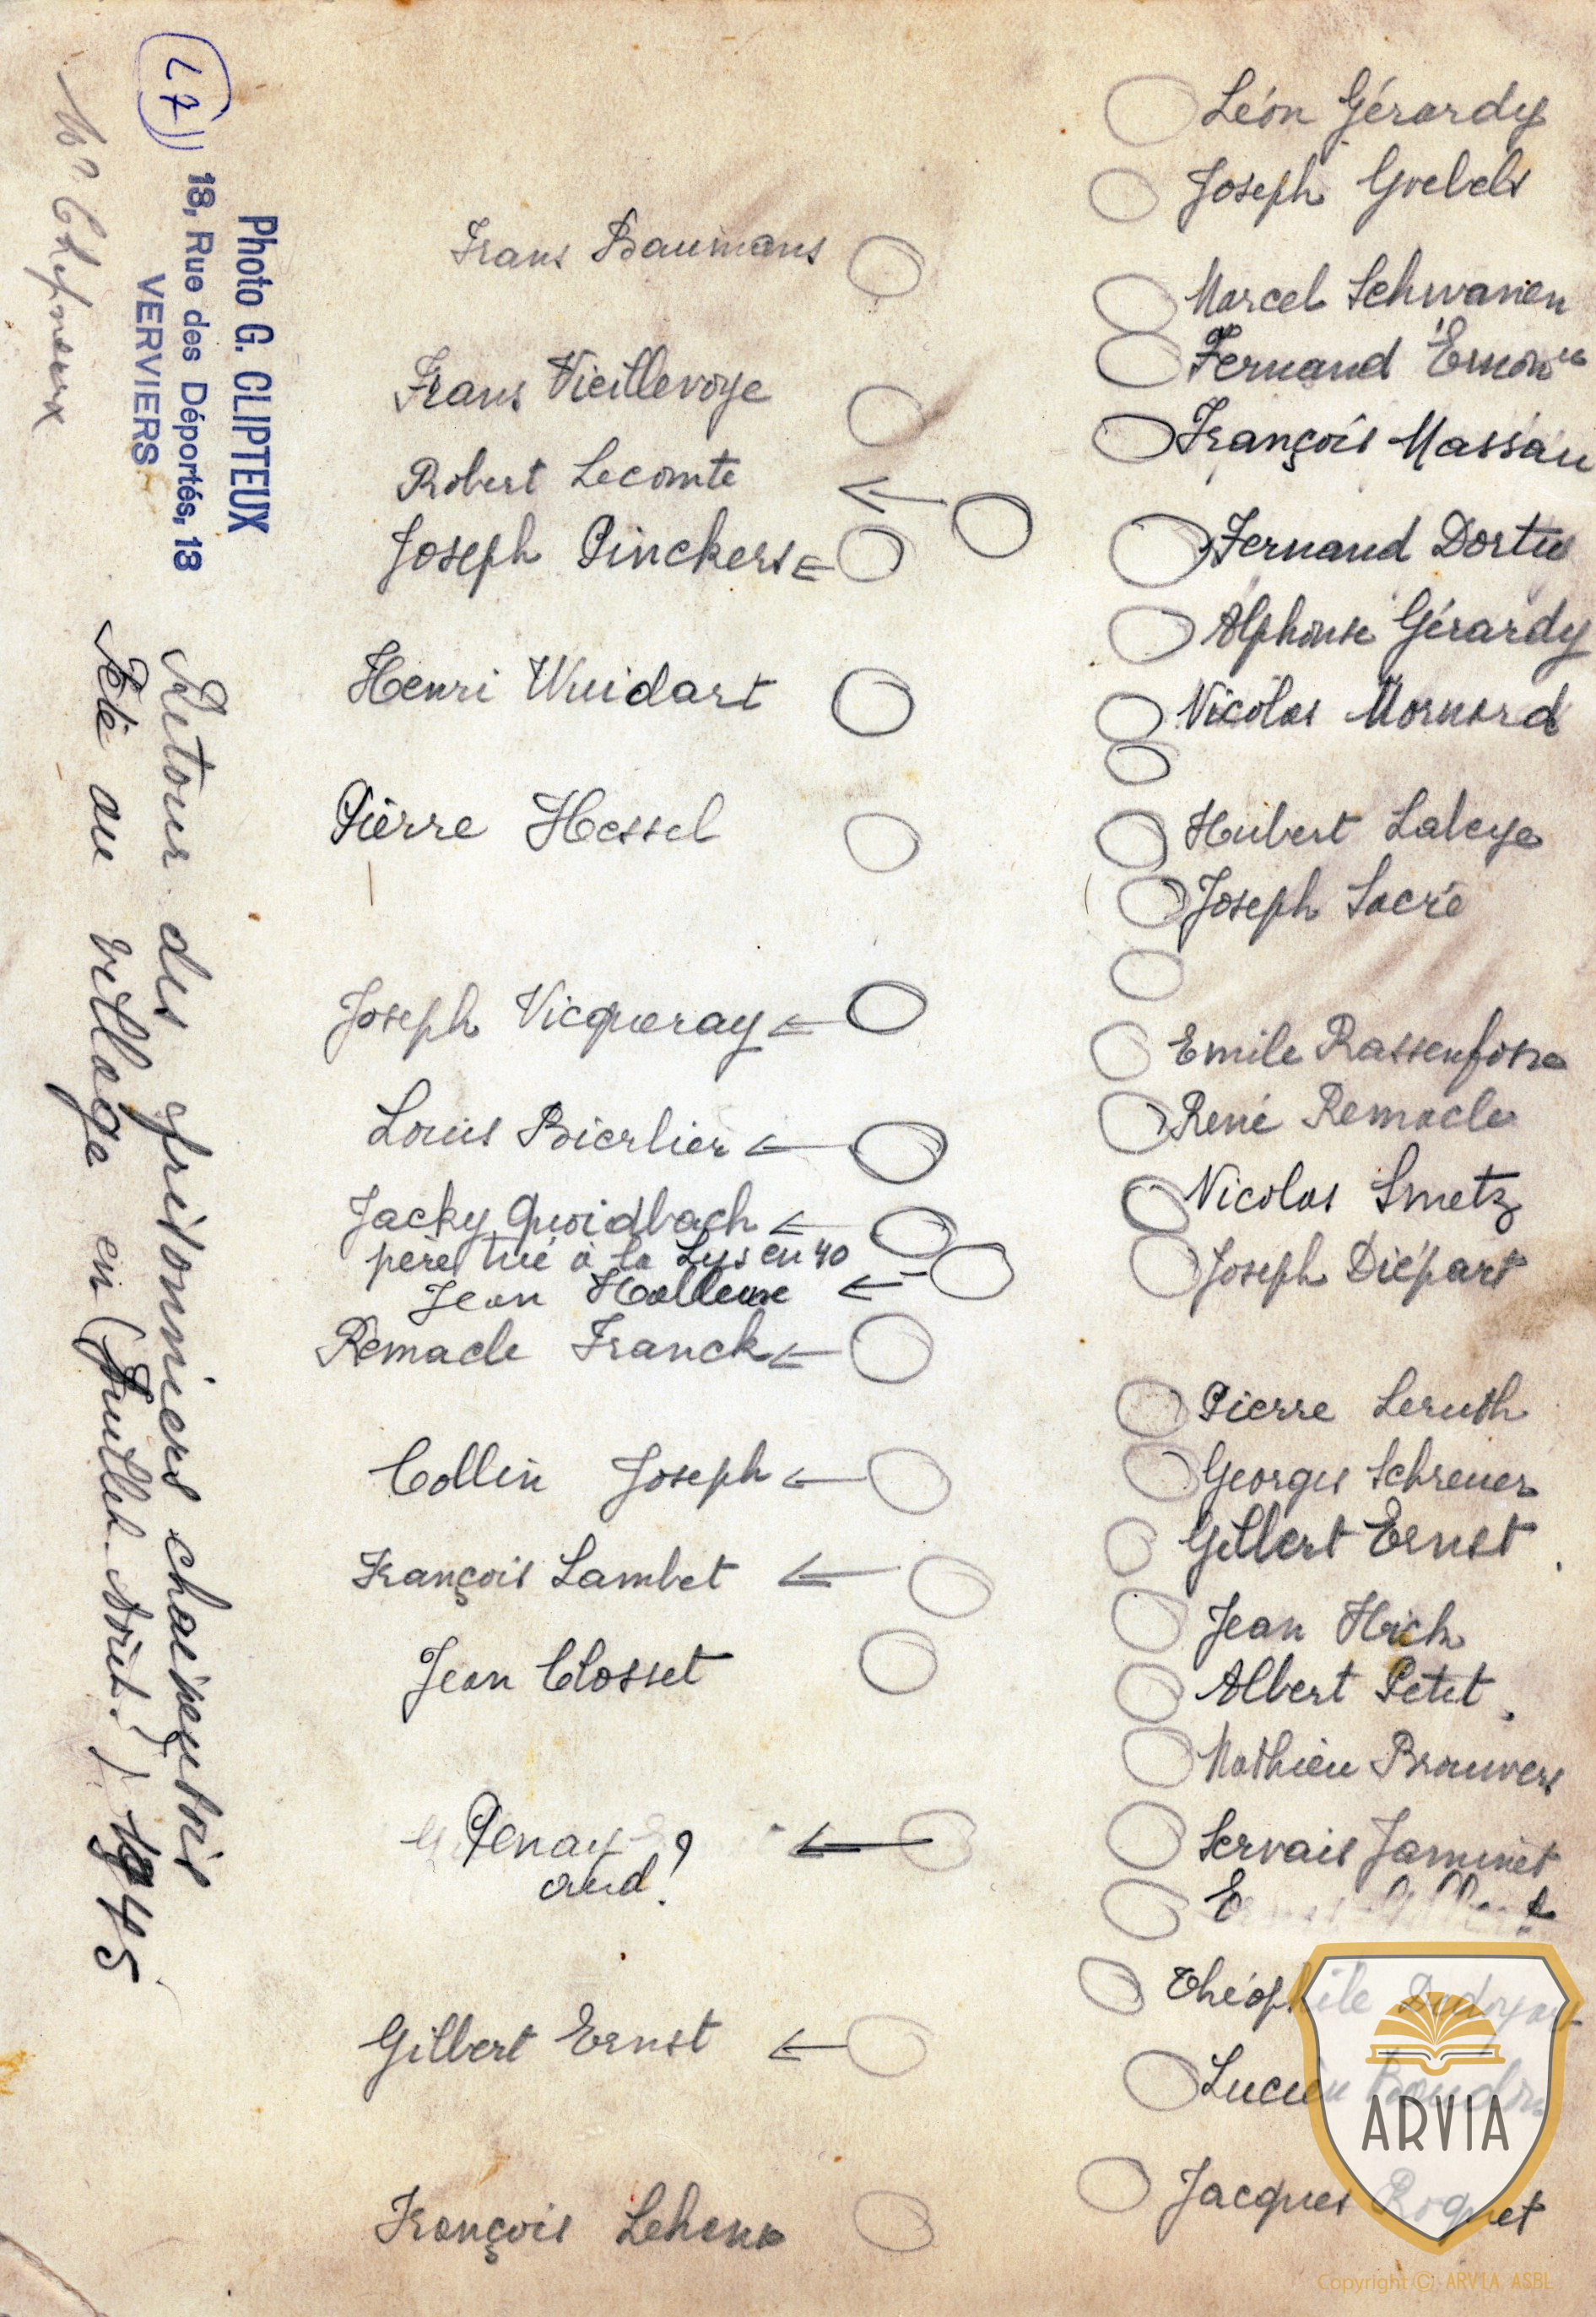 Léon Gérardy
Joseph Goebels
Marcel Schwanen
Fernand
François Massau
Fernand Dortu
Alphonse Gérardy
Nicolas Mornard
Hubert Labeye
Joseph Sacré
Emile Rassenfosse
René Remacle
Nicolas Smetz
Joseph Diépart
Pierre Leruth
Georges Schreuer
Gilbert Ernst
Jean
Albert Petit
Mathieu Brouwers
Servais Jaminet
Théophile
Lucien
Jacques Roguet
Frans Baumans
Frans Vieillevoye
Robert Lecomte
Joseph Pinckers
Henri Wuidart
Pierre Hessel
Joseph Vicqueray
Louis Bierlier
Jacky Quoidbach
père tué à la Lys en 40
Jean Halleux
Remacle Franck
Collin Joseph
François Lambet
Jean Closset
Penay ?
Gilbert Ernst
François
Photo G. CLIPTEUX
18, Rue des Déportés, 18
VERVIERS
(27)
Retour des prisonniers chaineutois
Fête au village en (Juillet 1945
ARVIA
Copyright © ARVIA ASBL